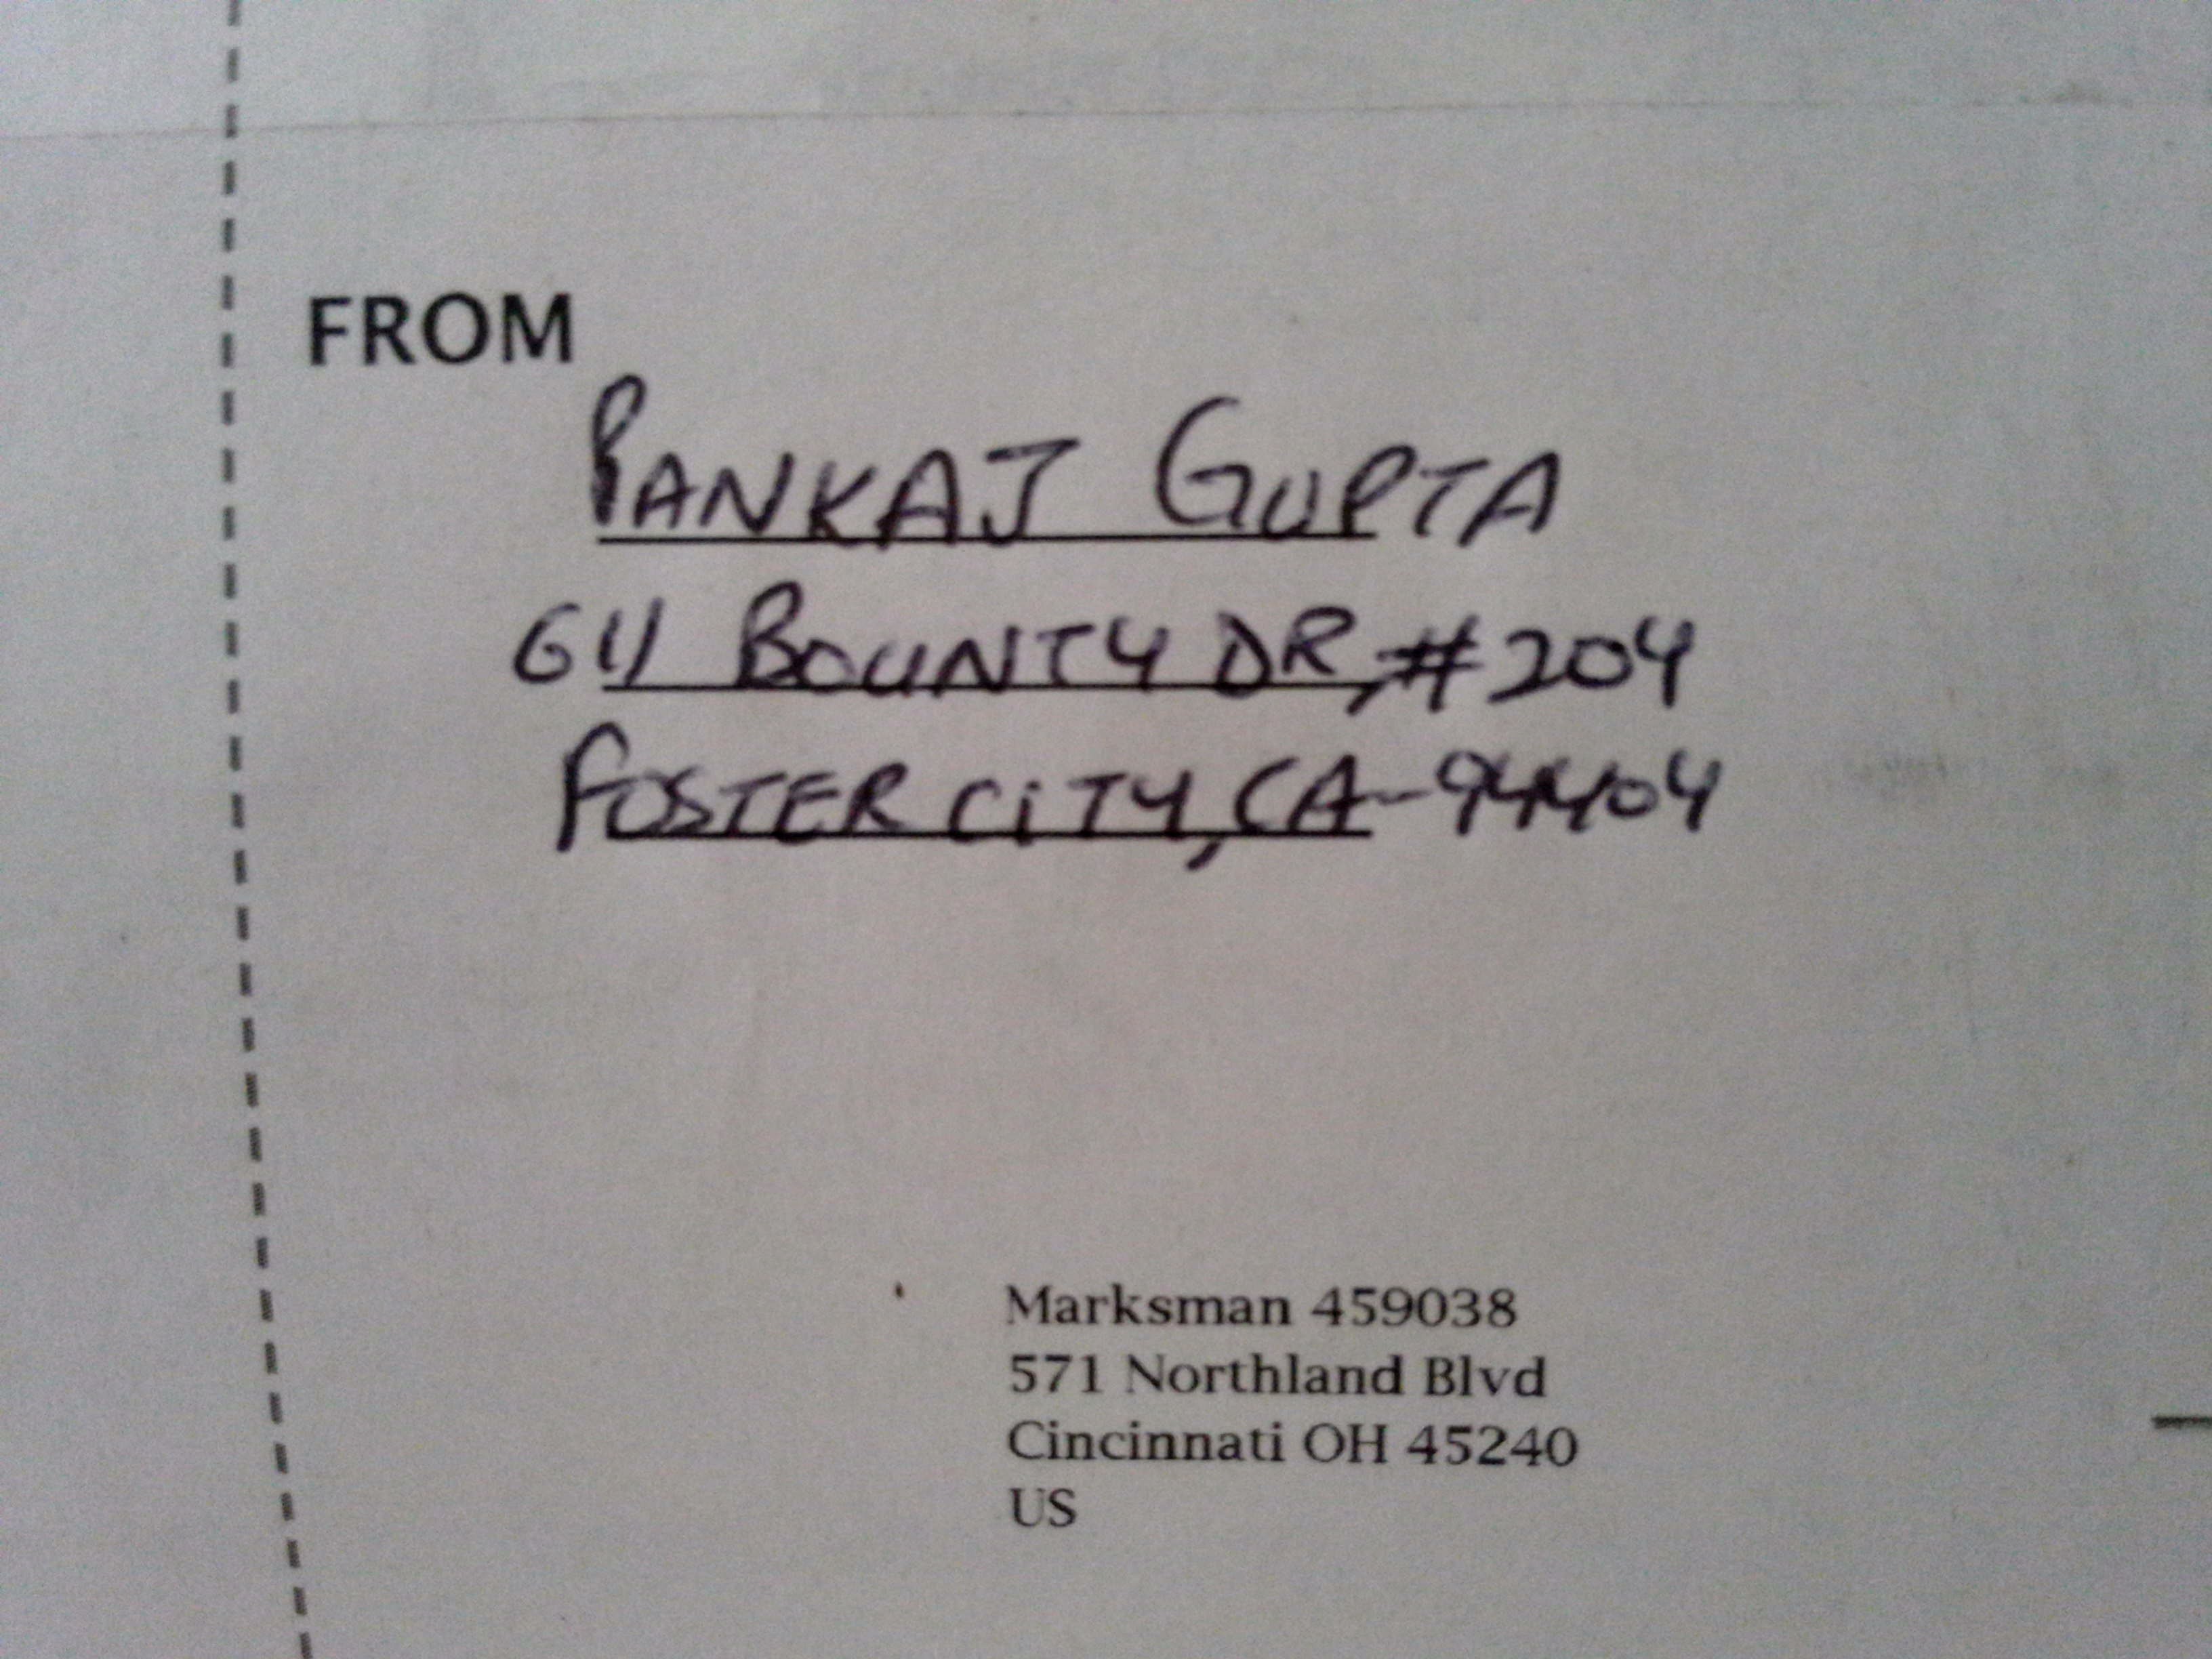 FROM
PANKAJ GUPTA
611 BOUNTY DR, #204
FOSTER CITY, CA-94404
Marksman 459038
571 Northland Blvd
Cincinnati OH 45240
US